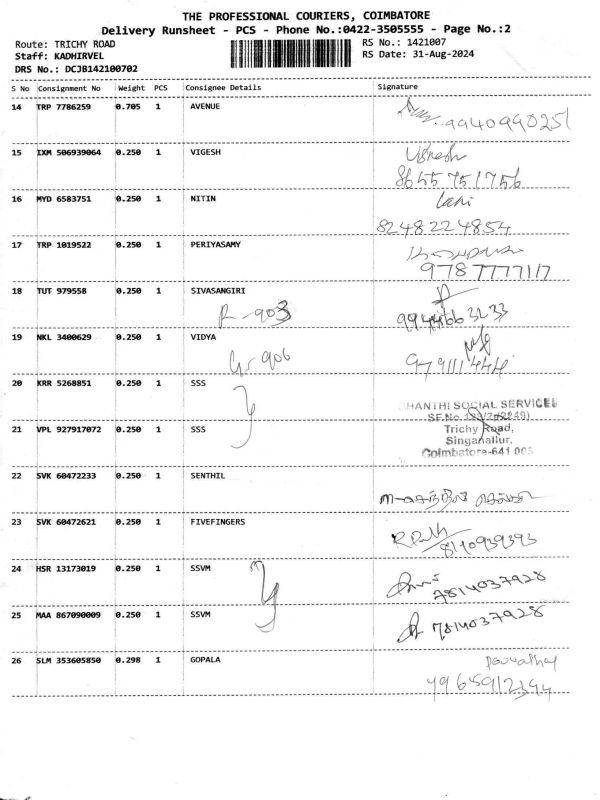 THE PROFESSIONAL COURIERS, COIMBATORE
Delivery Runsheet - PCS - Phone No.:0422-3505555 - Page No.:2
Route: TRICHY ROAD
RS No.: 1421007
Staff: KADHIRVEL
RS Date: 31-Aug-2024
DRS No.: DCJB142100702
S No Consignment No Weight PCS Consignee Details Signature
14 TRP 7786259 0.705 1 AVENUE
9940990251
15 IXM 506939064 0.250 1 VIGESH
Vignesh
8655751756
16 MYD 6583751 0.250 1 NITIN
8248224854
17 TRP 1019522 0.250 1 PERIYASAMY
9787777117
18 TUT 979558 0.250 1 SIVASANGIRI
R-903
9944663233
19 NKL 3400629 0.250 1 VIDYA
906
9791111444
20 KRR 5268851 0.250 1 SSS
SHANTHI SOCIAL SERVICES
SF.No.
21 VPL 927917072 0.250 1 SSS
Trichy Road,
Singanallur,
Coimbatore-641 005
22 SVK 60472233 0.250 1 SENTHIL
23 SVK 60472621 0.250 1 FIVEFINGERS
8110939393
24 HSR 13173019 0.250 1 SSVM
7814037928
25 MAA 867090009 0.250 1 SSVM
7814037928
26 SLM 353605850 0.298 1 GOPALA